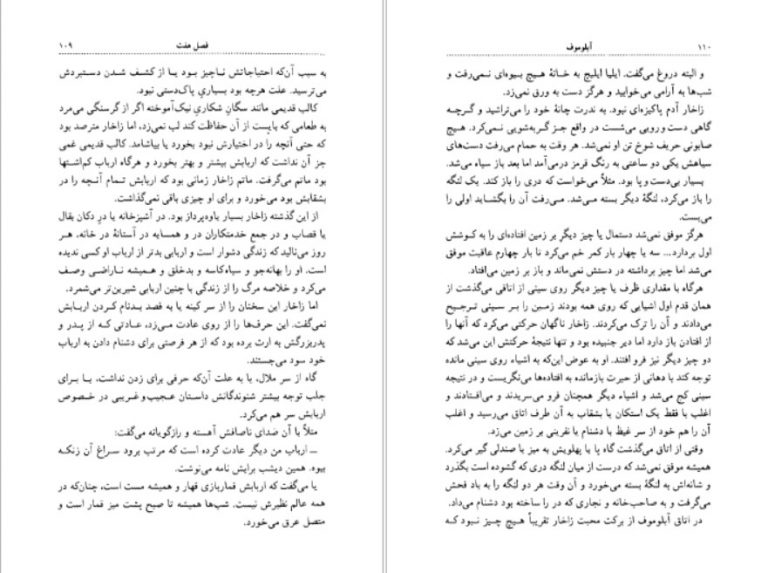 فصل هفت ۱۰۹
به سبب آن‌که احتیاجاتش ناچیز بود یا از کشف شدن دستبردش
می‌ترسید. علت هرچه بود بسیاری پاک‌دستی نبود.
کالب قدیمی مانند سگان شکاری نیک‌آموخته اگر از گرسنگی می‌مرد
به طعامی که بایست از آن حفاظت کند لب نمی‌زد، اما زاخار مترصد بود
که حتی آنچه را در اختیارش نبود بخورد یا بیاشامد. کالب قدیمی غمی
جز آن نداشت که اربابش بیشتر و بهتر بخورد و هرگاه ارباب کم‌اشتها
بود ماتم می‌گرفت. ماتم زاخار زمانی بود که اربابش تمام آنچه را در
بشقابش بود می‌خورد و برای او چیزی باقی نمی‌گذاشت.
از این گذشته زاخار بسیار یاوه‌پرداز بود. در آشپزخانه یا در دکان بقال
یا قصاب و در جمع خدمتکاران در و همسایه در آستانهٔ در خانه، هر
روز می‌نالید که زندگی دشوار است و اربابی بدتر از ارباب او کسی ندیده
است. او را بهانه‌جو و سیاه‌کاسه و بدخلق و همیشه ناراضی وصف
می‌کرد و خلاصه مرگ را از زندگی با چنین اربابی شیرین‌تر می‌شمرد.
اما زاخار این سخنان را از سر کینه یا به قصد بدنام کردن اربابش
نمی‌گفت. این حرف‌ها را از روی عادت می‌زد، عادتی که از پدر و
پدربزرگش به ارث برده بود که از هر فرصتی برای دشنام دادن به ارباب
خود سود می‌جستند.
گاه از سر ملال، یا به علت آن‌که حرفی برای زدن نداشت، یا برای
جلب توجه بیشتر شنوندگانش داستان عجیب و غریبی در خصوص
اربابش سر هم می‌کرد.
مثلاً با آن صدای ناصافش آهسته و رازگویانه می‌گفت:
ــ ارباب من دیگر عادت کرده است که مرتب برود سراغ آن زنکه
بیوه. همین دیشب برایش نامه می‌نوشت.
یا می‌گفت که اربابش قماربازی قهار و همیشه مست است، چنان‌که در
همه عالم نظیرش نیست. شب‌ها همیشه تا صبح پشت میز قمار است و
متصل عرق می‌خورد.
۱۱۰ آبلوموف
و البته دروغ می‌گفت. ایلیا ایلیچ به خانهٔ هیچ بیوه‌ای نمی‌رفت و
شب‌ها به آرامی می‌خوابید و هرگز دست به ورق نمی‌زد.
زاخار آدم پاکیزه‌ای نبود. به ندرت چانهٔ خود را می‌تراشید و گرچه
گاهی دست و رویی می‌شست در واقع جز گربه‌شویی نمی‌کرد. هیچ
صابونی حریف شوخ تن او نمی‌شد. هر وقت به حمام می‌رفت دست‌های
سیاهش یکی دو ساعتی به رنگ قرمز درمی‌آمد اما بعد باز سیاه می‌شد.
بسیار بی‌دست و پا بود. مثلاً می‌خواست که دری را باز کند. یک لنگه
را باز می‌کرد، لنگهٔ دیگر بسته می‌شد. می‌رفت آن را بگشاید اولی را
می‌بست.
هرگز موفق نمی‌شد دستمال یا چیز دیگر بر زمین افتاده‌ای را به کوشش
اول بردارد... سه یا چهار بار کمر خم می‌کرد تا بار چهارم عاقبت موفق
می‌شد اما چیز برداشته در دستش نمی‌ماند و باز بر زمین می‌افتاد.
هرگاه با مقداری ظرف یا چیز دیگر روی سینی از اتاقی می‌گذشت از
همان قدم اول اشیایی که روی همه بودند زمین را بر سینی ترجیح
می‌دادند و آن را ترک می‌کردند. زاخار ناگهان حرکتی می‌کرد که آنها را
از افتادن باز دارد اما دیر جنبیده بود و تنها نتیجهٔ حرکتش این می‌شد که
دو چیز دیگر نیز فرو افتند. او به عوض این‌که به اشیاء روی سینی مانده
توجه کند با دهانی از حیرت بازمانده به افتاده‌ها می‌نگریست و در نتیجه
سینی کج می‌شد و اشیاء دیگر همچنان فرو می‌سریدند و می‌افتادند و
اغلب با فقط یک استکان یا بشقاب به آن طرف اتاق می‌رسید و اغلب
آن را هم خود از سر غیظ با دشنام یا نفرینی بر زمین می‌زد.
وقتی از اتاق می‌گذشت گاه پا یا پهلویش به میز یا صندلی گیر می‌کرد.
همیشه موفق نمی‌شد که درست از میان لنگه دری که گشوده است بگذرد
و شانه‌اش به لنگهٔ بسته می‌خورد و آن وقت هر دو لنگه را به باد فحش
می‌گرفت و به صاحب‌خانه و نجاری که در را ساخته بود دشنام می‌داد.
در اتاق آبلوموف از برکت محبت زاخار تقریباً هیچ چیز نبود که